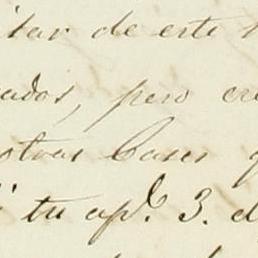 itar de este
ados, pero cre
otras bases
tu apdo. 3. d